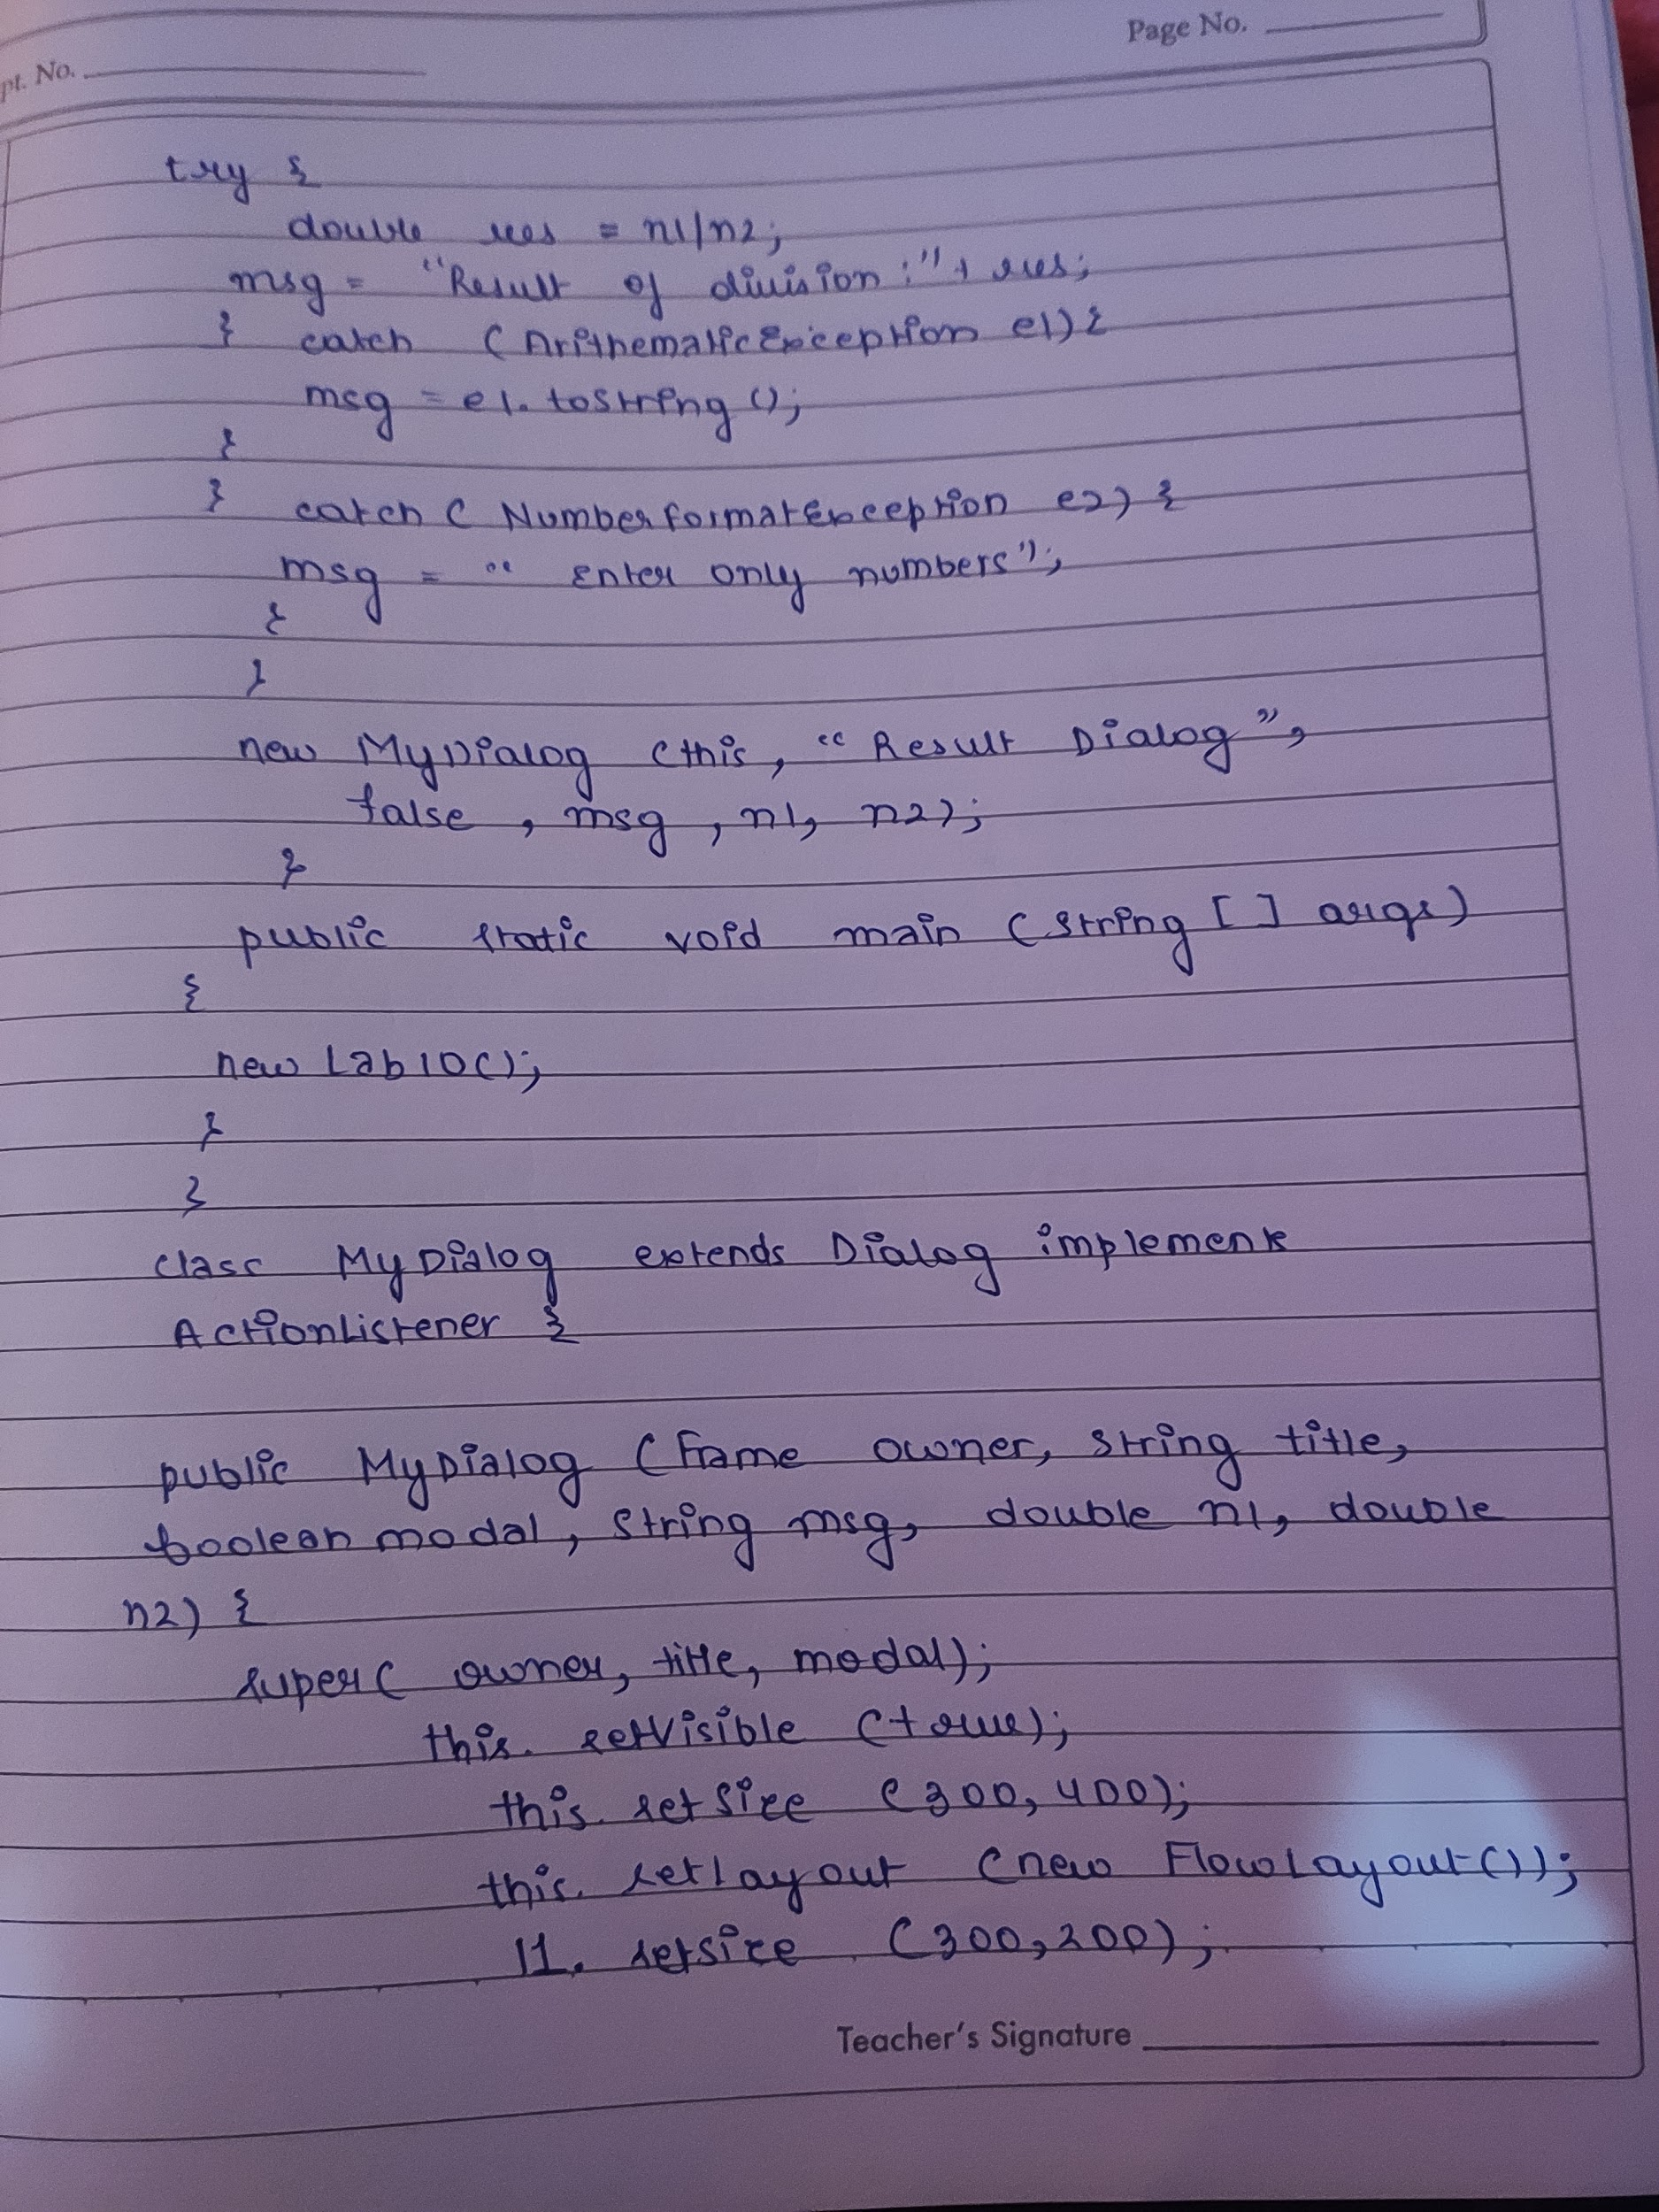 pt. No.
Page No.
try {
double res = n1/n2;
msg = "Result of division :" + res;
} catch (ArithematicException e1) {
msg = e1.toString ();
}
} catch ( NumberFormatException e2) {
msg = " Enter only numbers";
}
}
new MyDialog (this, "Result Dialog",
false , msg , n1, n2);
}
public static void main (String [ ] args)
{
new Lab10();
}
}
class MyDialog extends Dialog implements
ActionListener {
public MyDialog (Frame owner, String title,
boolean modal, String msg, double n1, double
n2) {
super( owner, title, modal);
this. setVisible (true);
this. setSize (300, 400);
this. setlayout (new FlowLayout());
l1. setsize (300,200);
Teacher's Signature